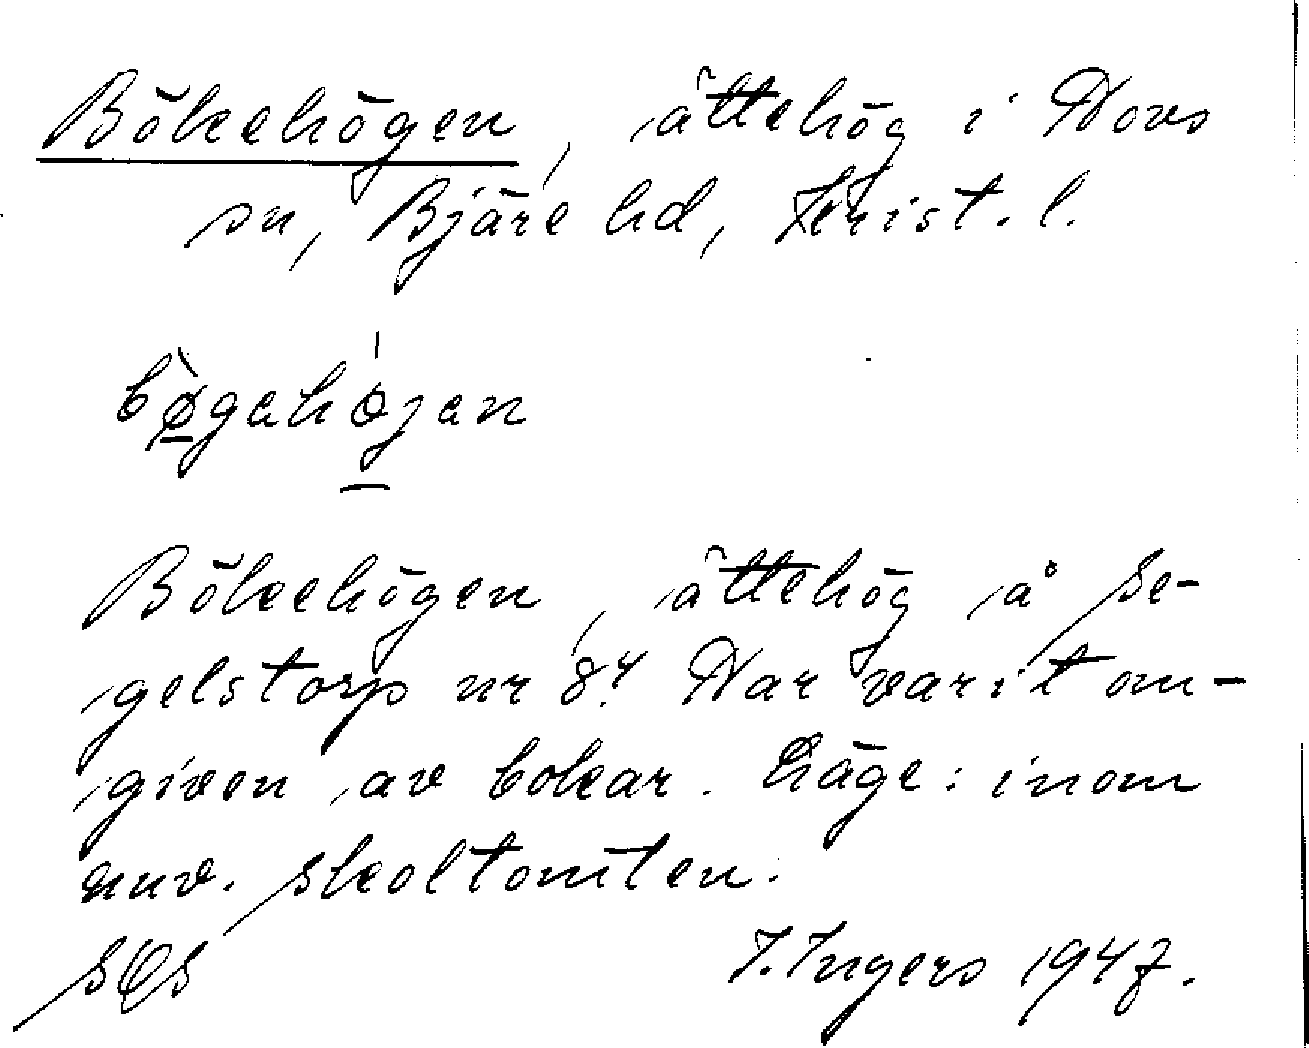 Bökehögen, ättehög i Hovs
sn, Bjäre hd, Krist. l.
bø̀gahǿjan
Bökehögen, ättehög å Se-
gelstorp nr 8? Har varit om-
given av bokar. Läge: inom
nuv. skoltomten.
SOS I. Ingers 1947.